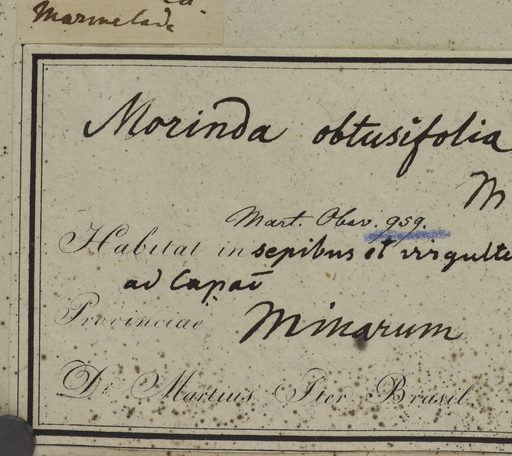 Marmelade
Morinda obtusifolia
M
Mart. Obs. 959.
Habitat in sepibus et virgulte
ad Capaō
Provinciae Minarum
Dr. Martius Iter Brasil.